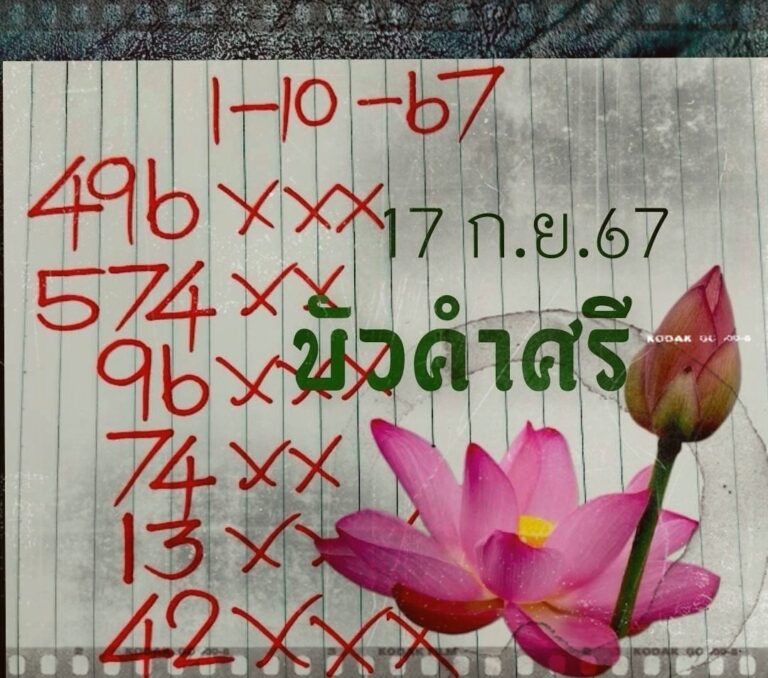 1-10-67
496 xxx
17 ก.ย.67
574 xx
บัวคำศรี
KODAK GC
96 xxx
74 xx
13 xxx
42 xxx
KODAK GC
KODAK FILM
KODAK GC